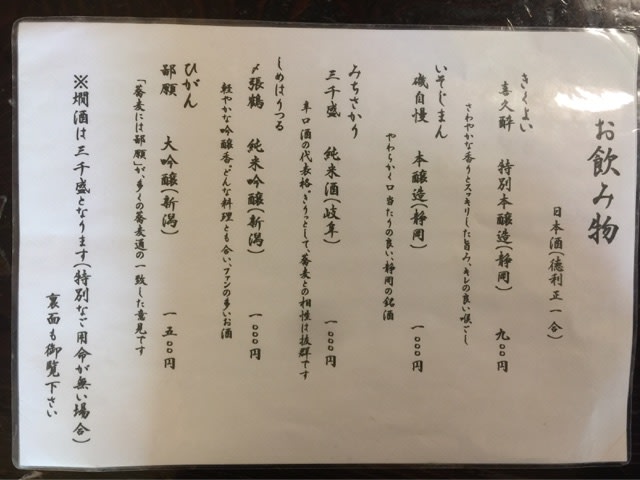 お飲み物
日本酒(徳利正一合)
きくよい
喜久酔 特別本醸造(静岡) 九〇〇円
さわやかな香りとスッキリした旨み、キレの良い喉ごし
いそじまん
磯自慢 本醸造(静岡) 一〇〇〇円
やわらかく口当たりの良い、静岡の銘酒
みちさかり
三千盛 純米酒(岐阜) 一〇〇〇円
辛口酒の代表格。きりっとして、蕎麦との相性は抜群です
しめはりつる
〆張鶴 純米吟醸(新潟) 一〇〇〇円
軽やかな吟醸香。どんな料理とも合い、ファンの多いお酒
ひがん
鄙願 大吟醸(新潟) 一五〇〇円
「蕎麦には鄙願」が、多くの蕎麦通の一致した意見です
※燗酒は三千盛となります(特別なご用命が無い場合)
裏面も御覧下さい